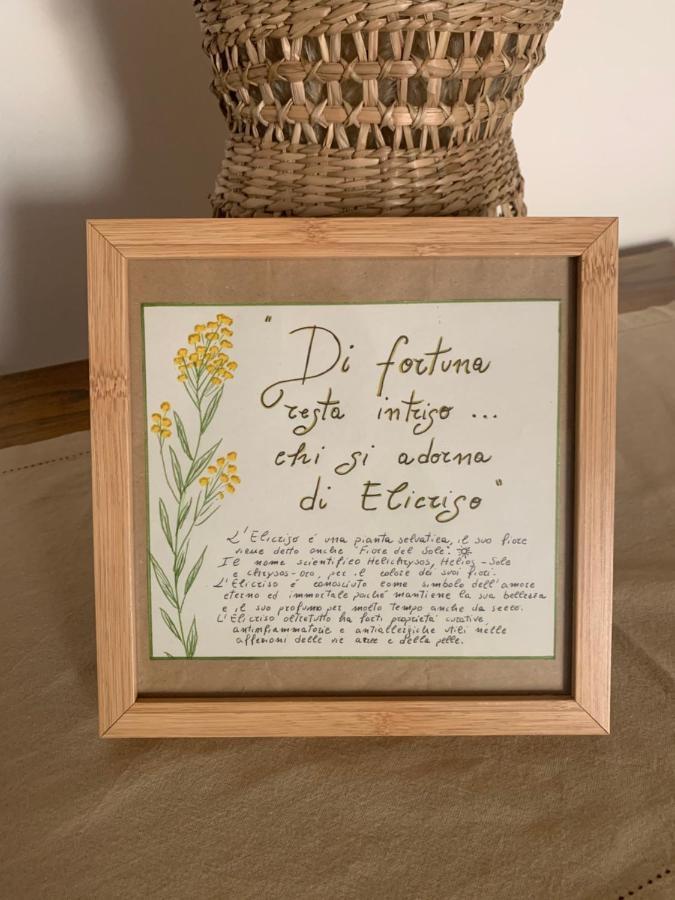 "Di fortuna
resta intriso ...
chi si adorna
di Elicriso"
L'Elicriso è una pianta selvatica, il suo fiore
viene detto anche "Fiore del Sole".
Il nome scientifico Helichrysos, Helios-Sole
e chrysos-oro, per il colore dei suoi fiori.
L'Elicriso è conosciuto come simbolo dell'amore
eterno ed immortale poiché mantiene la sua bellezza
e il suo profumo per molto tempo anche da secco.
L'Elicriso oltretutto ha forti proprietà curative,
antinfiammatorie e antiallergiche utili nelle
affezioni delle vie aeree e della pelle.